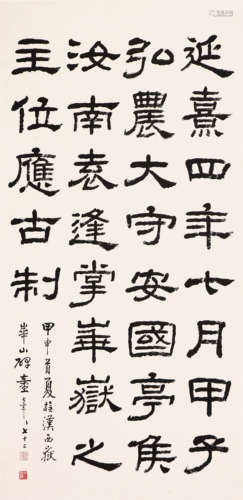 延熹四年七月甲子
弘農大守安國亭侯
汝南袁逢掌華嶽之
主位應古制
甲申首夏臨漢西岳
華山碑
七十二